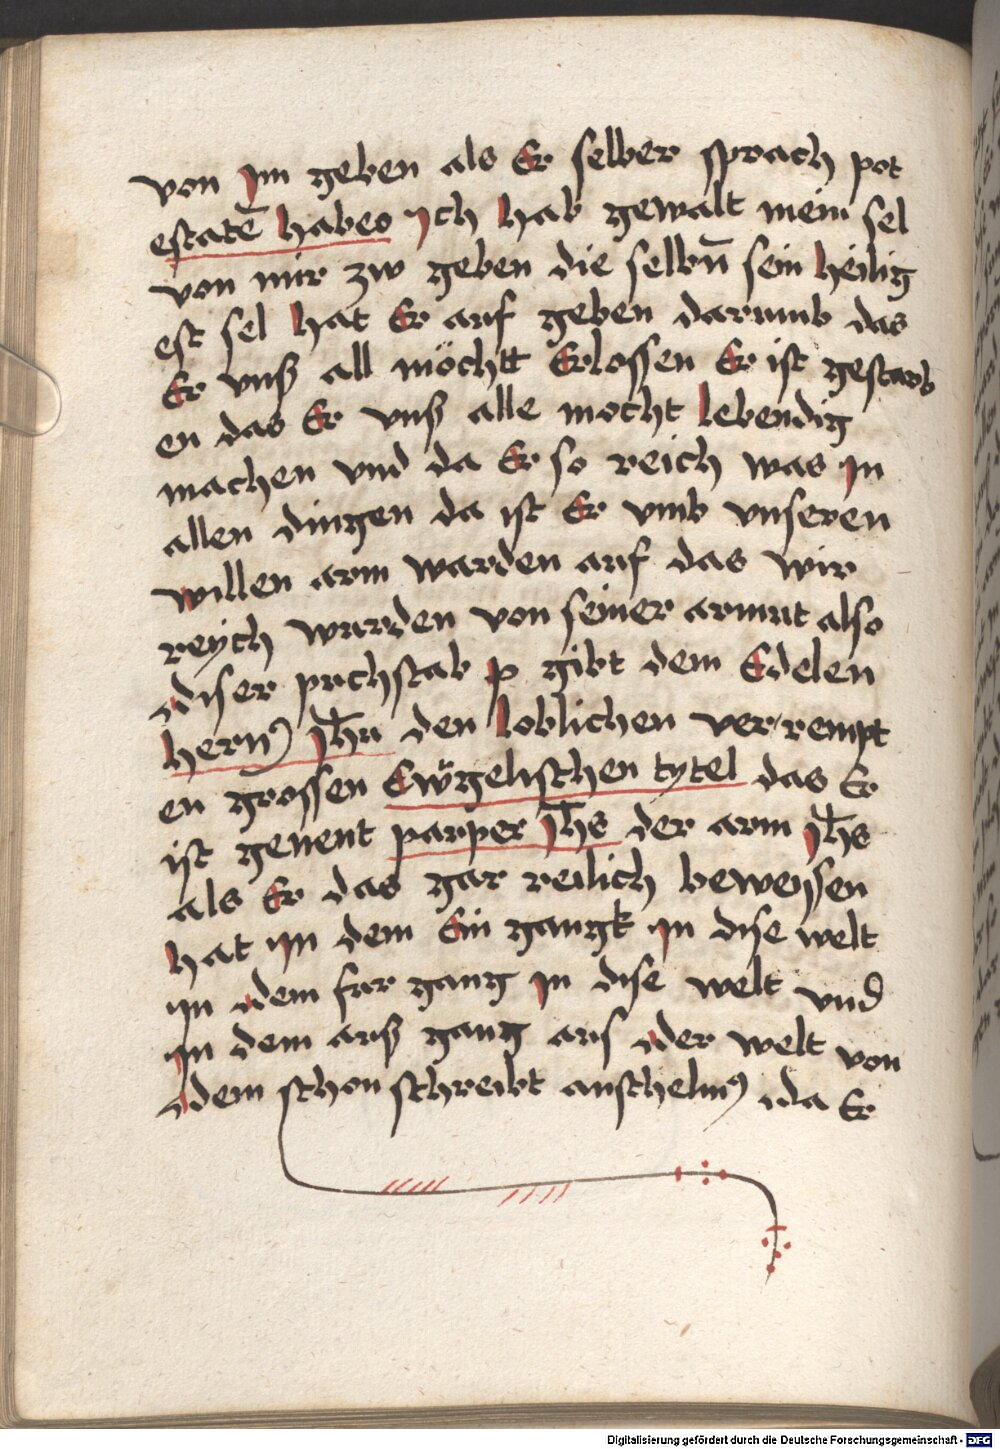 von im geben als Er selber sprach pot
estatē habeo ich hab gewalt mein sel
von mir zw geben die selbn̄ sein heilig
est sel hat Er auf geben darumb das
Er vnß all möchtt Erlossen Er ist gestarb
en das Er vnß alle mocht lebendig
machen vnd da Er so reich was in
allen dingen da ist Er vmb vnseren
willen arm warden auf das wir
reÿch wurden von seiner armut also
diser puchstab p gibt dem Edelen
hern9 jh̄u den loblichen ver rempt
en grossen Ewgelischen tytel das Er
ist genent pauper jh̄s der arm jh̄s
als Er das gar reilich beweÿsen
hat in dem Ein gangk in dise welt
in dem fur gang in dise welt vnd
in dem auß gang aus der welt von
dem schon schreibt anschelm9 da Er
Digitalisierung gefördert durch die Deutsche Forschungsgemeinschaft - DFG